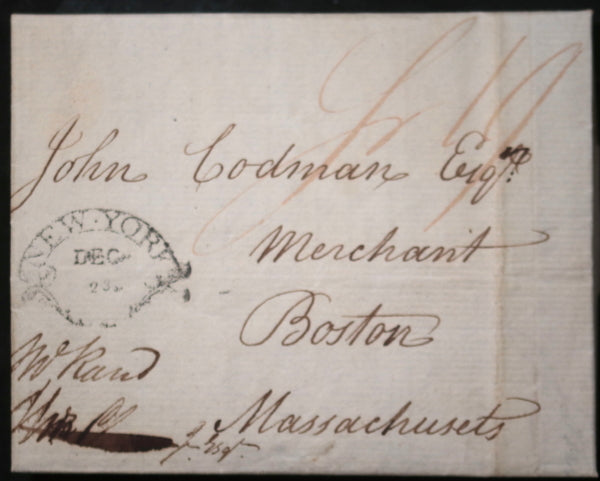 John Codman Esqr.
Merchant
Boston
Massachusets
NEW-YORK
DEC
23